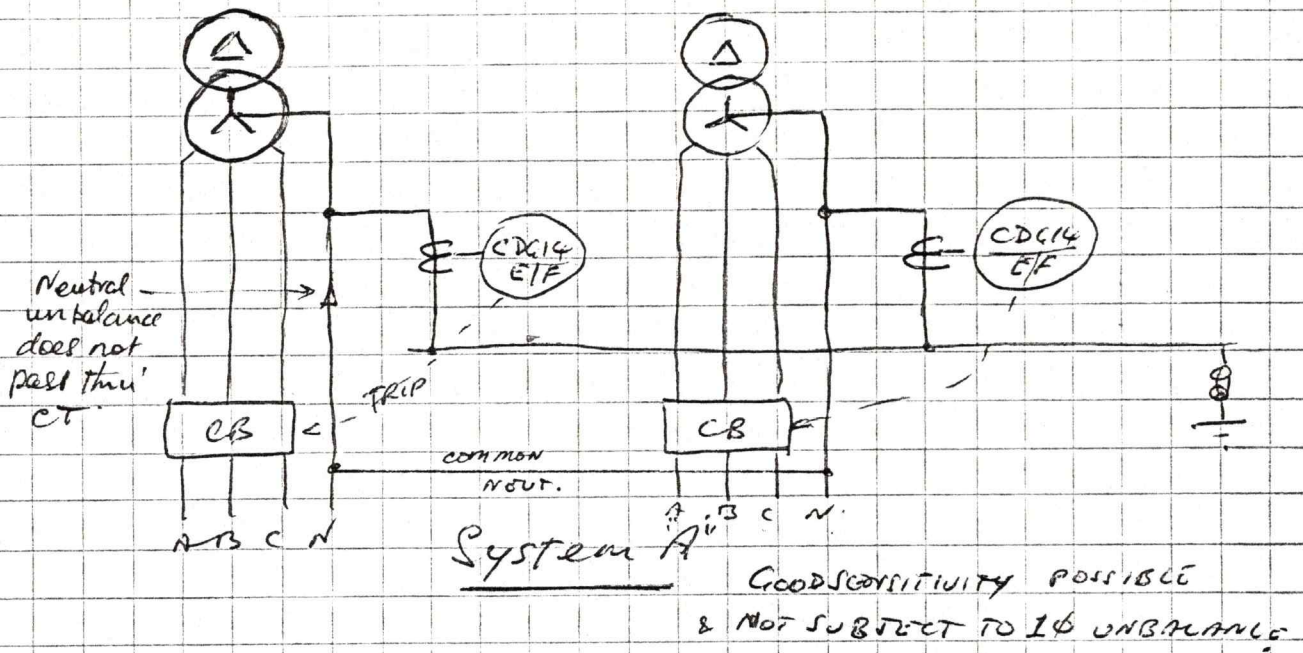 Δ
Δ
CDG14
E/F
CDG14
E/F
Neutral
unbalance
does not
pass thru'
CT
TRIP
CB
CB
COMMON
NEUT.
A B C N
A B C N.
System "A"
GOOD SENSITIVITY POSSIBLE
& NOT SUBJECT TO 1Φ UNBALANCE.